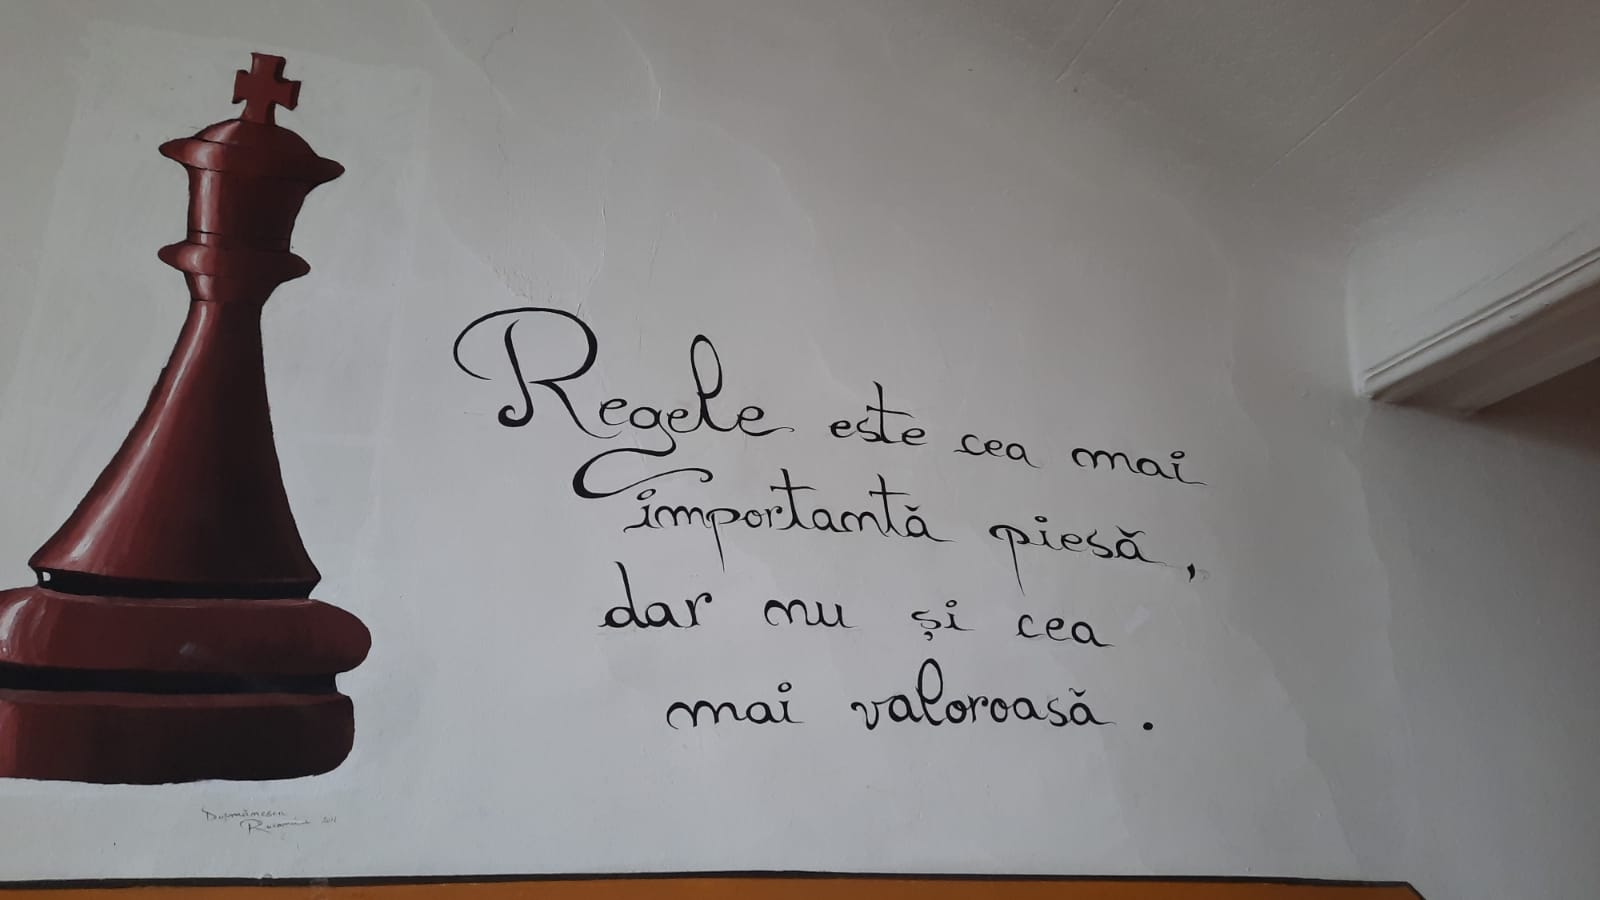 Regele este cea mai
importantă piesă,
dar nu și cea
mai valoroasă.